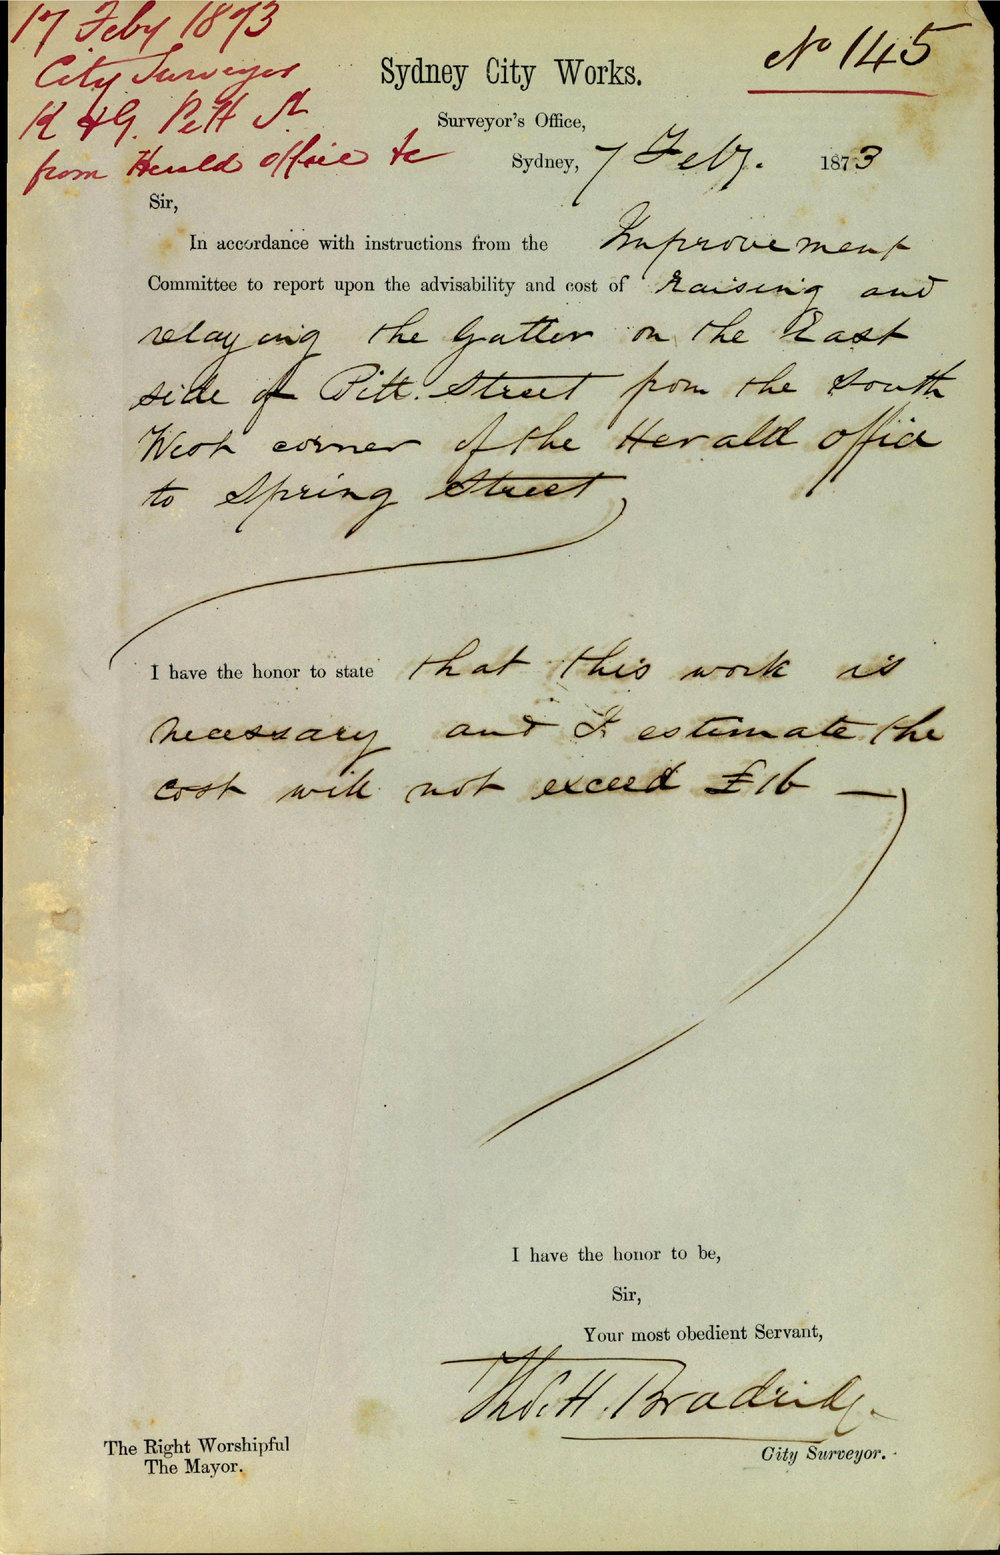 17 Feby 1873
City Surveyor
K & G. Pitt St
from Herald office &c
No 145
Sydney City Works.
Surveyor's Office,
Sydney, 7 Feby. 1873
Sir,
In accordance with instructions from the Improvement
Committee to report upon the advisability and cost of raising and
relaying the Gutter on the East
side of Pitt. Street from the South
West corner of the Herald office
to Spring Street
I have the honor to state that this work is
necessary and I estimate the
cost will not exceed £16 —
I have the honor to be,
Sir,
Your most obedient Servant,
Thos. H. Bradridge.
City Surveyor.
The Right Worshipful
The Mayor.